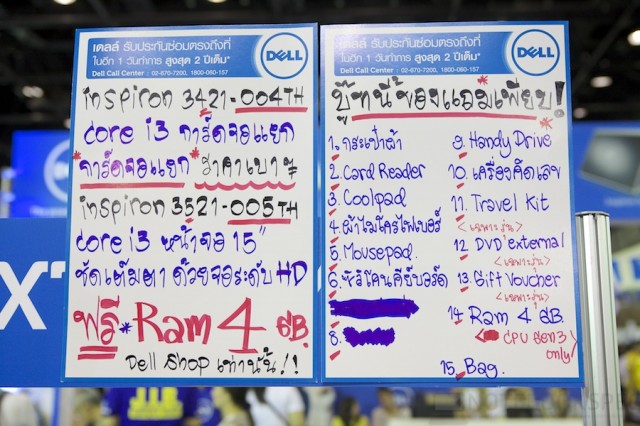 เดลล์ รับประกันซ่อมตรงถึงที่
ในอีก 1 วันทำการ สูงสุด 2 ปีเต็ม*
Dell Call Center : 02-670-7200, 1800-060-157
DELL
inspiron 3421-004TH
core i3 การ์ดจอแยก
*การ์ดจอแยก* ราคาเบาๆ
inspiron 3521-005TH
core i3 หน้าจอ 15"
ชัดเต็มตา ด้วยจอระดับ HD
ฟรี*Ram 4 GB.
Dell Shop เท่านั้น!!
เดลล์ รับประกันซ่อมตรงถึงที่
ในอีก 1 วันทำการ สูงสุด 2 ปีเต็ม*
Dell Call Center : 02-670-7200, 1800-060-157
DELL
บู๊ทนี้ของแถมเพียบ!
1. กระเป๋าผ้า
2. Card Reader
3. Coolpad
4. ผ้าไมโครไฟเบอร์
5. Mousepad.
6. ซิลิโคนคีย์บอร์ด
8.
9. Handy Drive
10. เครื่องคิดเลข
11. Travel Kit
<เฉพาะรุ่น>
12 DVD external
<เฉพาะรุ่น>
13. Gift Voucher
<เฉพาะรุ่น>
14 Ram 4 GB.
CPU gen3
only!
15. Bag.